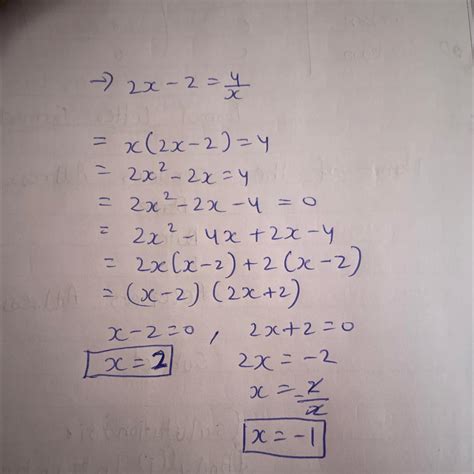 → 2x - 2 = 4/x
= x(2x-2) = 4
= 2x² - 2x = 4
= 2x² - 2x - 4 = 0
= 2x² - 4x + 2x - 4
= 2x(x-2) + 2(x-2)
= (x-2) (2x+2)
x - 2 = 0 , 2x + 2 = 0
x = 2 2x = -2
x = -2/2
x = -1